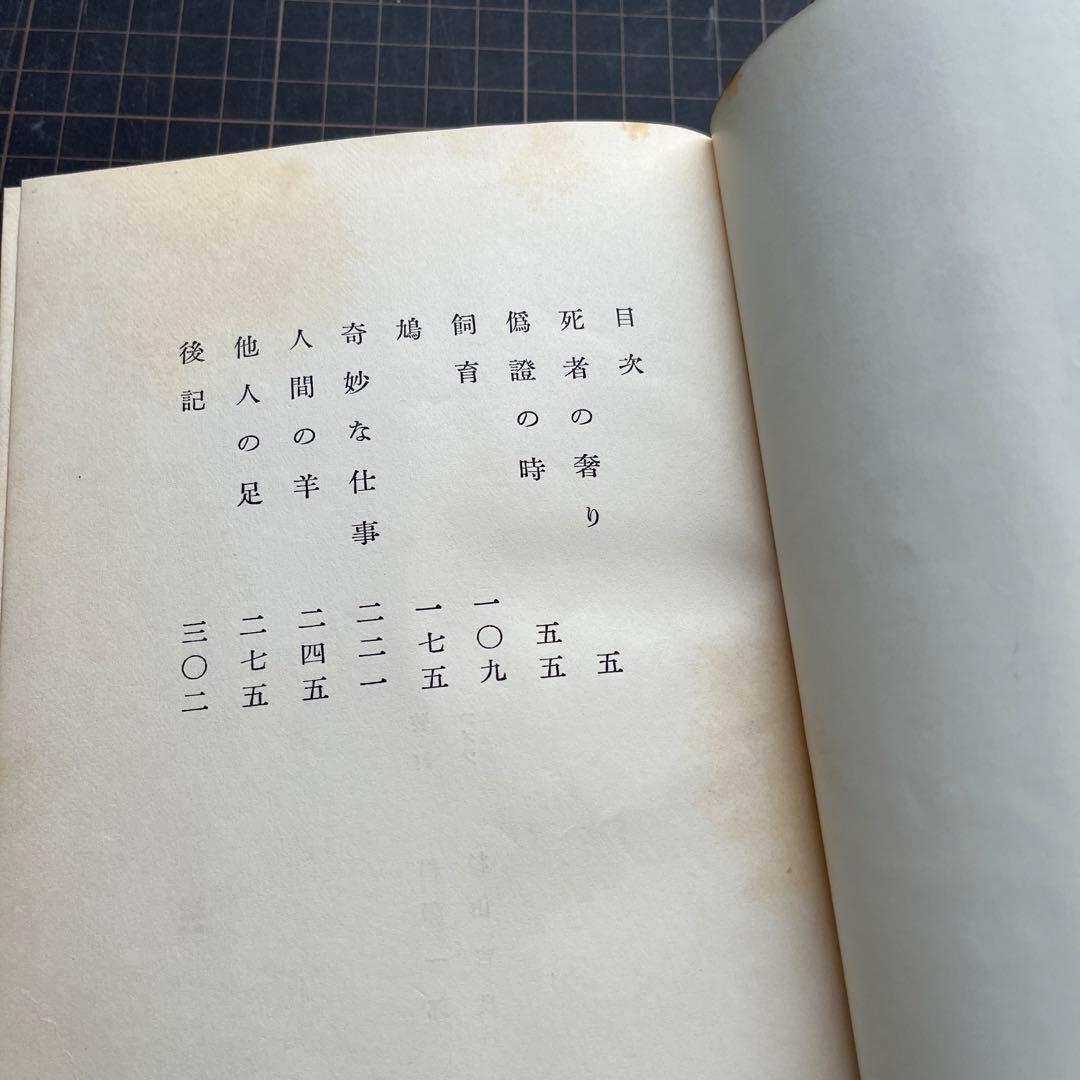 目次
死者の奢り 五
僞證の時 五五
飼育 一〇九
鳩 一七五
奇妙な仕事 二二一
人間の羊 二四五
他人の足 二七五
後記 三〇二